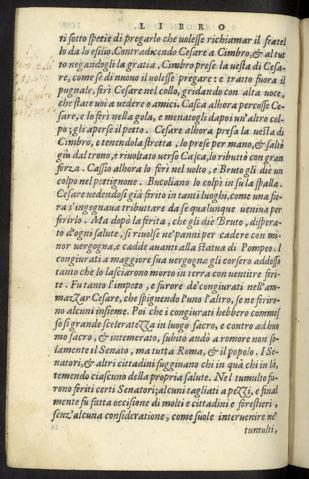 LIBRO
ti sotto spetie di pregarlo che uolesse richiamar il fratel
lo da lo esilio. Contradicendo Cesare a Cimbro, & al tut
to negandogli la gratia, Cimbro prese la uesta di Cesa-
re, come se di nuouo il uolesse pregare: e tratto fuora il
pugnale, ferì Cesare nel collo, gridando con alta uoce,
che state uoi a uedere o amici. Casca alhora percosse Ce-
sare, e lo ferì nella gola, e menatogli dapoi un'altro col-
po; gli aperse il petto. Cesare alhora presa la uesta di
Cimbro, e tenendola stretta, lo prese per mano, & saltò
giu dal trono, e riuoltato verso Casca, lo ributtò con gran
forza. Cassio alhora lo ferì nel volto, e Bruto gli die un
colpo nel pettignone. Bucoliano lo colpì in su la spalla.
Cesare uedendosi già ferito in tanti luoghi, come una fie-
ra s'ingegnaua tributtare da se qualunque ueniua per
ferirlo. Ma dopò la ferita, che gli die Bruto, dispera-
to d'ogni salute, si riuolse ne' panni per cadere con mi-
nor vergogna, e cadde auanti alla statua di Pompeo. I
congiurati a maggiore sua vergogna gli corsero addosso
tanto che lo lasciarono morto in terra con uentitre feri-
te. Fu tanto l'impeto, e furore de' congiurati nell'am-
mazzar Cesare, che spignendo l'uno l'altro, se ne feriro-
no alcuni insieme. Poi che i congiurati hebbero commes-
so sì grande sceleratezza in luogo sacro, e contro ad huo
mo sacro, & intemerato, subito andò a romore non so-
lamente il Senato, ma tutta Roma, & il popolo. I Se-
natori, & altri cittadini fuggiuano chi in quà chi in là,
temendo ciascuno della propria salute. Nel tumulto fu-
rono feriti certi Senatori; alcuni tagliati a pezzi, e final
mente fu fatta occisione di molti e cittadini e forestieri,
senz'alcuna consideratione, come suole interuenire ne'
tumulti,